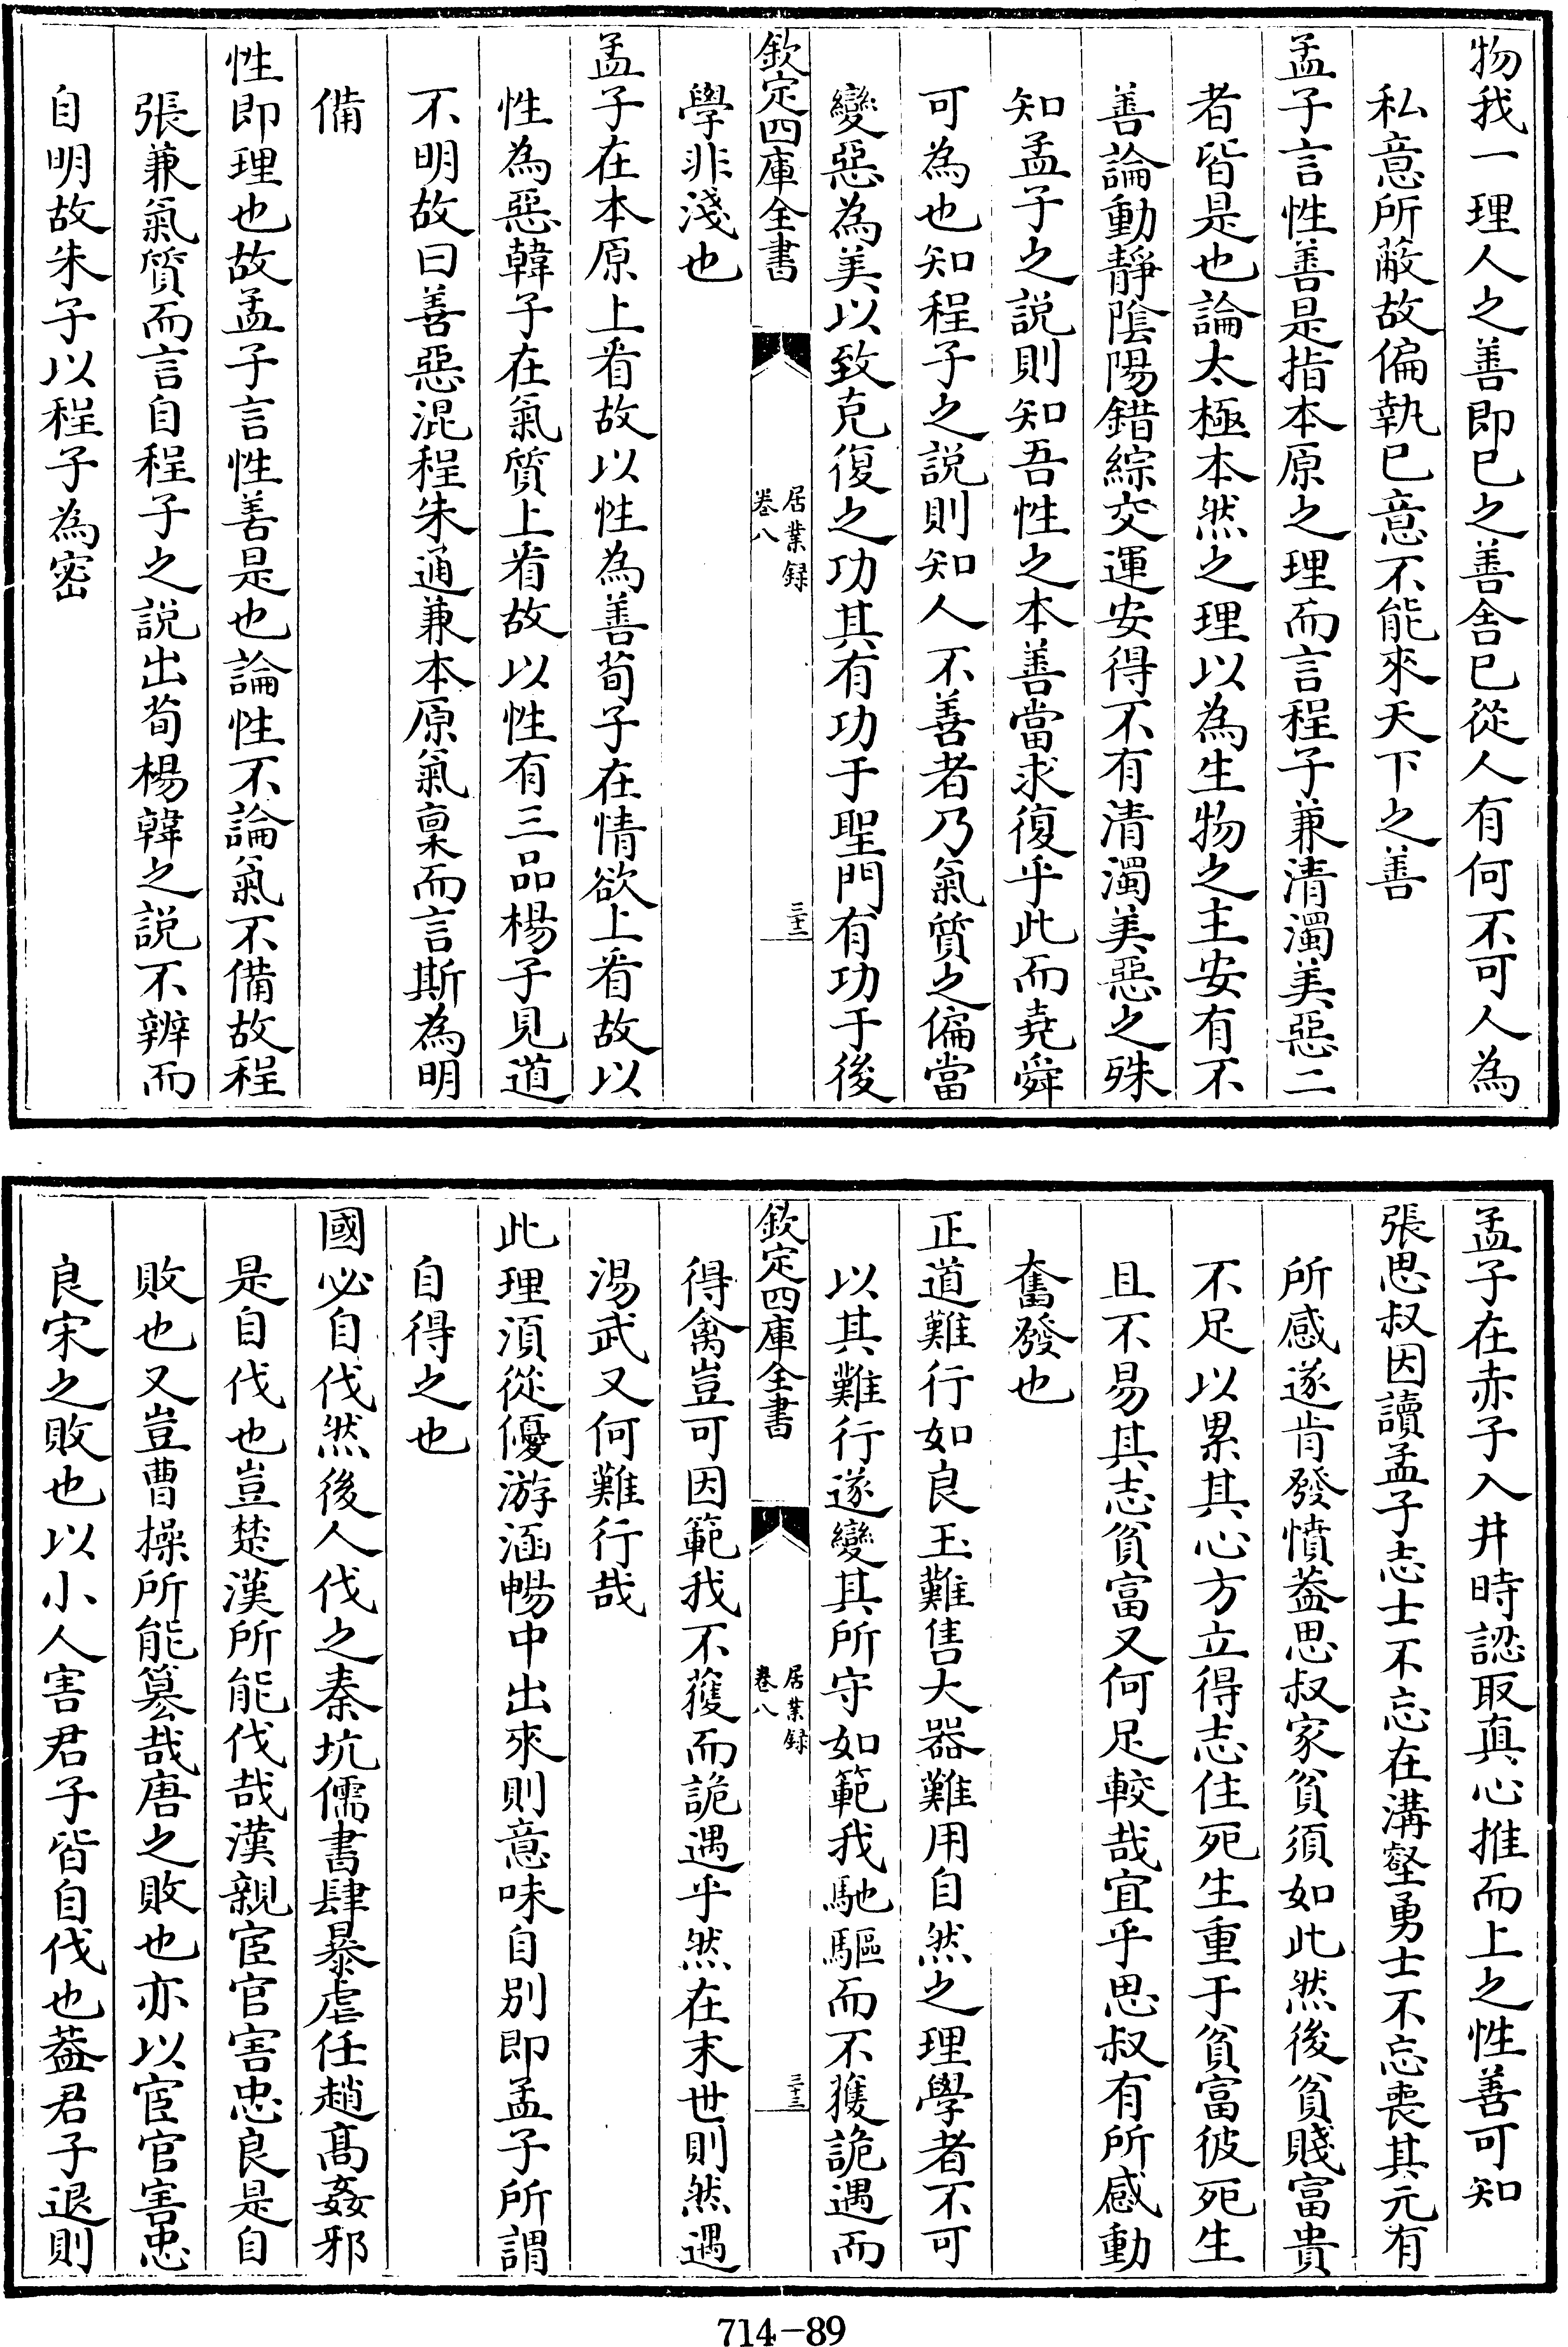 物我一理人之善即已之善舍已從人有何不可人為
私意所蔽故偏執已意不能來天下之善
孟子言性善是指本原之理而言程子兼清濁美惡二
者皆是也論太極本然之理以為生物之主安有不
善論動靜隂陽錯綜交運安得不有清濁美惡之殊
知孟子之説則知吾性之本善當求復乎此而堯舜
可為也知程子之説則知人不善者乃氣質之偏當
變惡為美以致克復之功其有功于聖門有功于後
欽定四庫全書
居業録
卷八
三十二
學非淺也
孟子在本原上看故以性為善荀子在情欲上看故以
性為惡韓子在氣質上看故以性有三品楊子見道
不明故曰善惡混程朱通兼本原氣稟而言斯為明
備
性即理也故孟子言性善是也論性不論氣不備故程
張兼氣質而言自程子之説出荀楊韓之説不辨而
自明故朱子以程子為密
孟子在赤子入井時認取真心推而上之性善可知
張思叔因讀孟子志士不忘在溝壑勇士不忘喪其元有
所感遂肯發憤葢思叔家貧須如此然後貧賤富貴
不足以累其心方立得志住死生重于貧富彼死生
且不易其志貧富又何足較哉宜乎思叔有所感動
奮發也
正道難行如良玉難售大器難用自然之理學者不可
以其難行遂變其所守如範我馳驅而不獲詭遇而
得禽豈可因範我不獲而詭遇乎然在末世則然遇
湯武又何難行哉
欽定四庫全書
居業録
卷八
三十三
此理湏從優游涵暢中出來則意味自别即孟子所謂
自得之也
國必自伐然後人伐之秦坑儒書肆暴虐任趙髙姦邪
是自伐也豈楚漢所能伐哉漢親宦官害忠良是自
敗也又豈曹操所能簒哉唐之敗也亦以宦官害忠
良宋之敗也以小人害君子皆自伐也葢君子退則
714-89